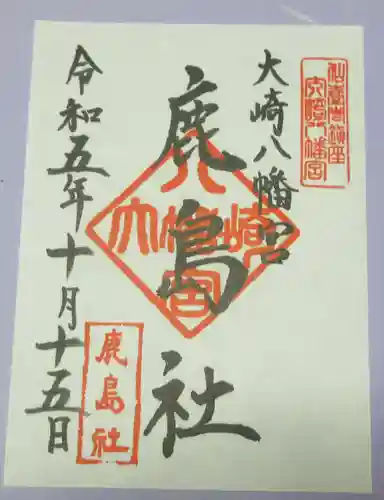 仙臺总鎮座
安頼八幡宮
大崎八幡宮
鹿島社
大崎八幡宮
令和五年十月十五日
鹿島社